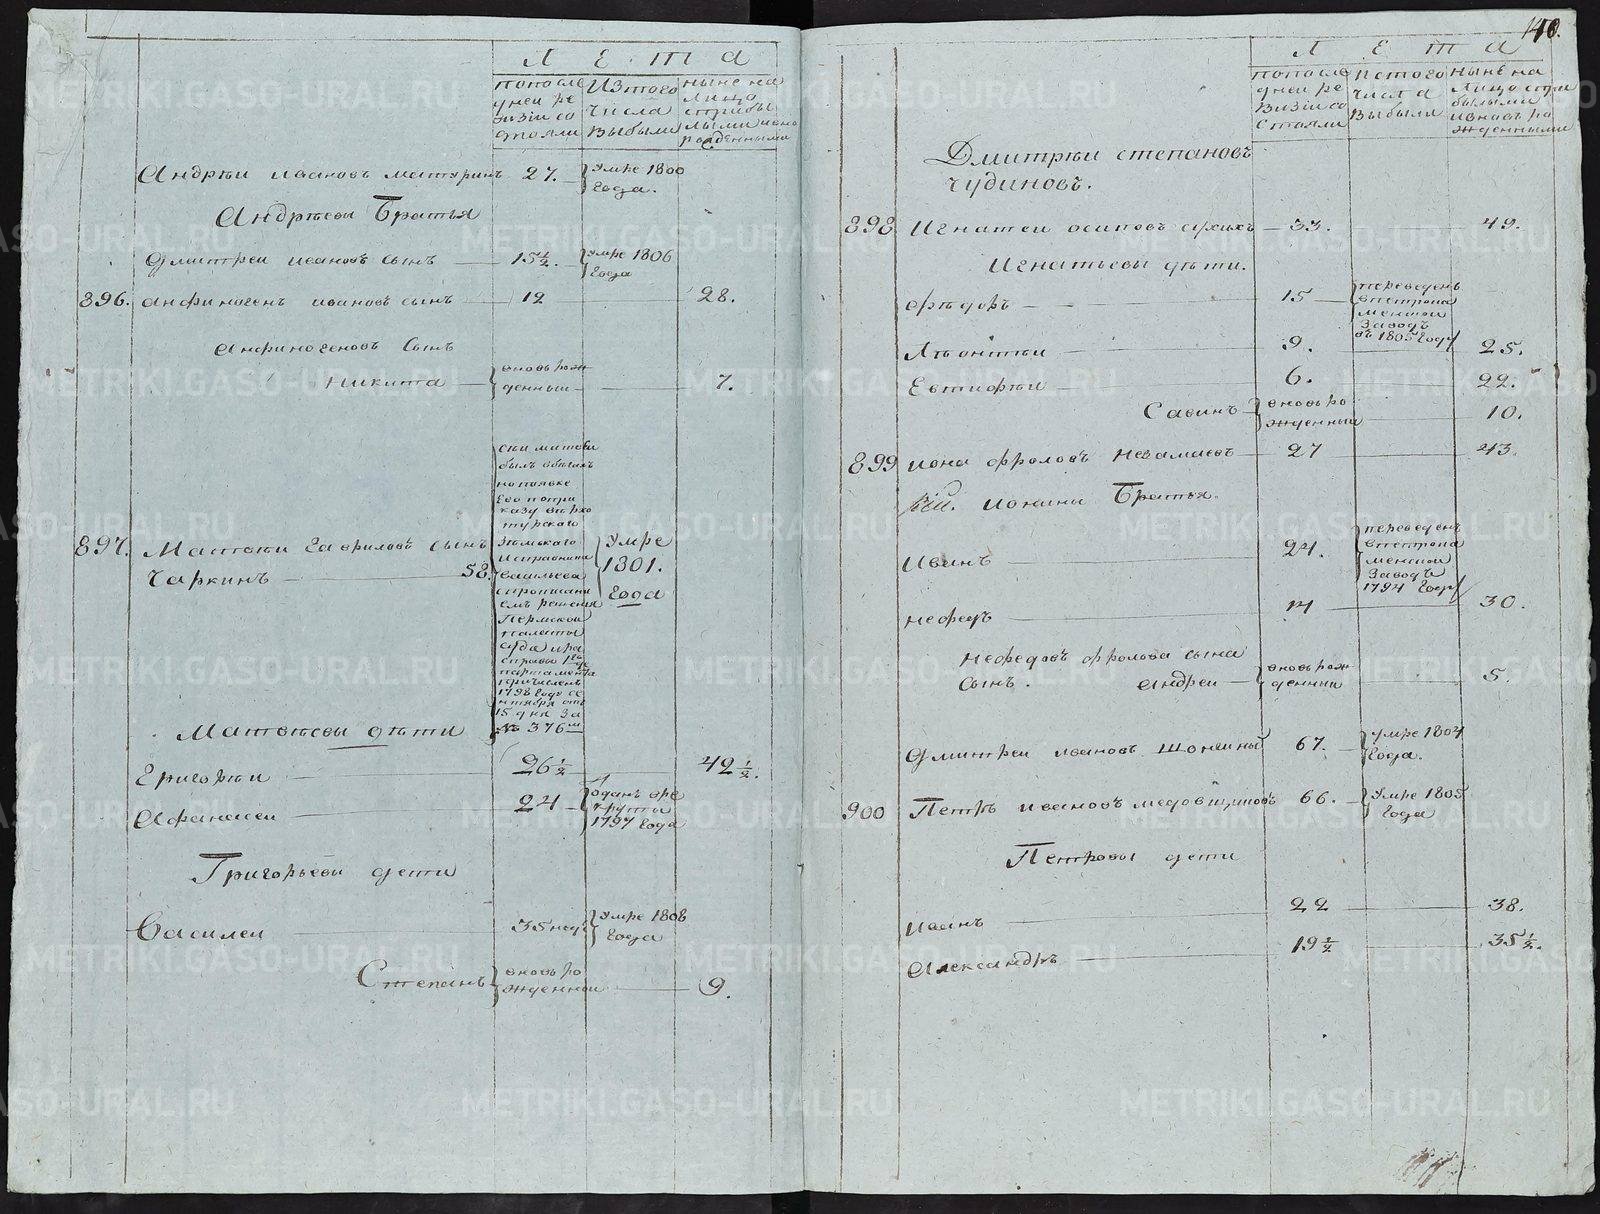 Л Е т а
попосле
дней ре
визіи со
стояли
Изтого
числа
выбыли
ныне на
лицо
спрыбы
лыми ивно
рожденными
Андрѣи ивановъ матуринъ 27. умре 1800
года.
Андрѣевы Братья
дмитреи ивановъ сынъ 15½. умре 1806
года
896. анфиногенъ ивановъ сынъ 12 28.
анфиногеновъ сынъ
никита вновь рож
денныи 7.
897. Матвѣи гавриловъ сынъ
чаркинъ 58.
сеи матвеи
былъ вбегахъ
попоявке
его попри
казу верхо
турскаго
земскаго
исправника
васильева
спрописани
емъ решения
Пермской
палаты
суда ира
справы 1го де
партамента
причисленъ
1798 года се
нтября отъ
15 дня за
№ 376м
умре
1801.
года
Матвѣевы дѣти
Григорѣи 26½ 42½.
Афанасеи 24 одан вре
круты
1797 года
Григорьевы дети
Василеи 35 нед. умре 1808
года
Степанъ вновь ро
жденнои 9.
140.
Л Е т а
попосле
дней ре
визіи со
стояли
Истого
числа
выбыли
Ныне на
лицо спри
былыми
ивновь ро
жденными
Дмитрѣи степановъ
чудиновъ.
898 Игнатеи осиповъ 33. 49.
Игнатьевы дѣти.
Ѳедоръ 15 переведенъ
впетрока
менской
заводъ
въ 1805 году
Лѣонтѣи 9. 25.
Евтифѣи 6. 22.
Савинъ вновь ро
жденныи 10.
899 иона фроловъ незамаевъ 27 43.
ионины Братья.
Иванъ 24. переведенъ
впетрока
менской
заводъ
1794 году
нефедъ 14 30.
Нефедовъ фролова сына
сынъ. андреи вновь рож
деннии 5.
дмитреи ивановъ шонсины 67. умре 1804
года.
900 Петръ ивановъ медовщиковъ 66. умре 1805
года
Петровы дети
Иванъ 22 38.
Александръ 19½ 35½.
METRIKI.GASO-URAL.RU